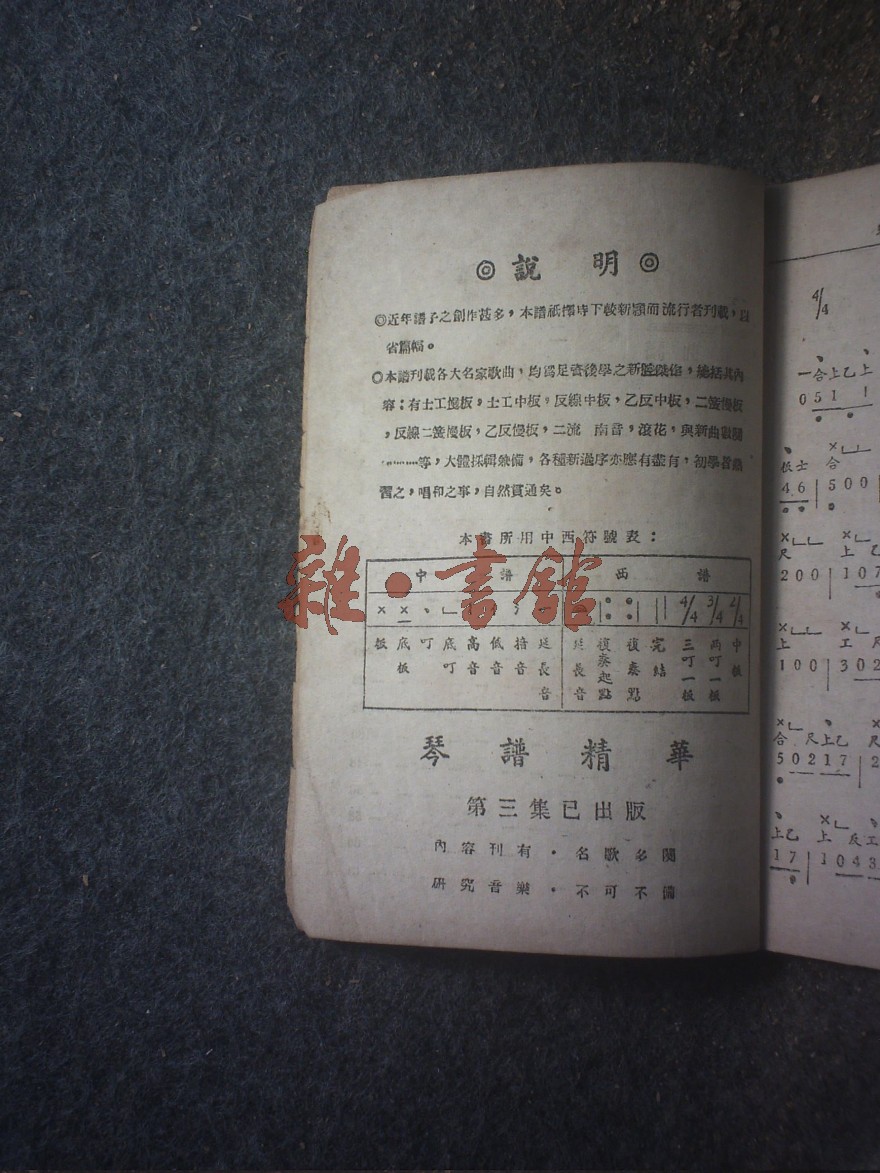 ◎說 明◎
◎近年譜子之創作甚多，本譜祇擇時下較新頴而流行者刊載，以
省篇幅。
◎本譜刊載各大名家歌曲，均爲足資後學之新腔傑作，總括其內
容：有士工慢板，士工中板，反線中板，乙反中板，二簧慢板
，反線二簧慢板，乙反慢板，二流 南音，滾花，與新曲
………等，大體採輯兼備，各種新過序亦應有盡有，初學者
習之，唱和之事，自然貫通矣。
本書所用中西符號表：
中譜 西譜
× × 、 4/4 3/4 2/4
板 底板 叮 底叮 高音 低音 揞音 延長音 延長音 復奏起點 復奏點 完結 三叮一板 兩叮一板 中板
雜·書館
琴譜精華
第三集已出版
內容刊有·名歌名
研究音樂·不可不備
4/4
一合上乙上
0 5 1 1
士 合
4 6 | 5 0 0
尺 上乙
2 0 0 | 1 0 7
上 工尺
1 0 0 | 3 0 2
合 尺上乙 尺
5 0 2 1 7 | 2
上乙 上 反工
1 7 | 1 0 4 3